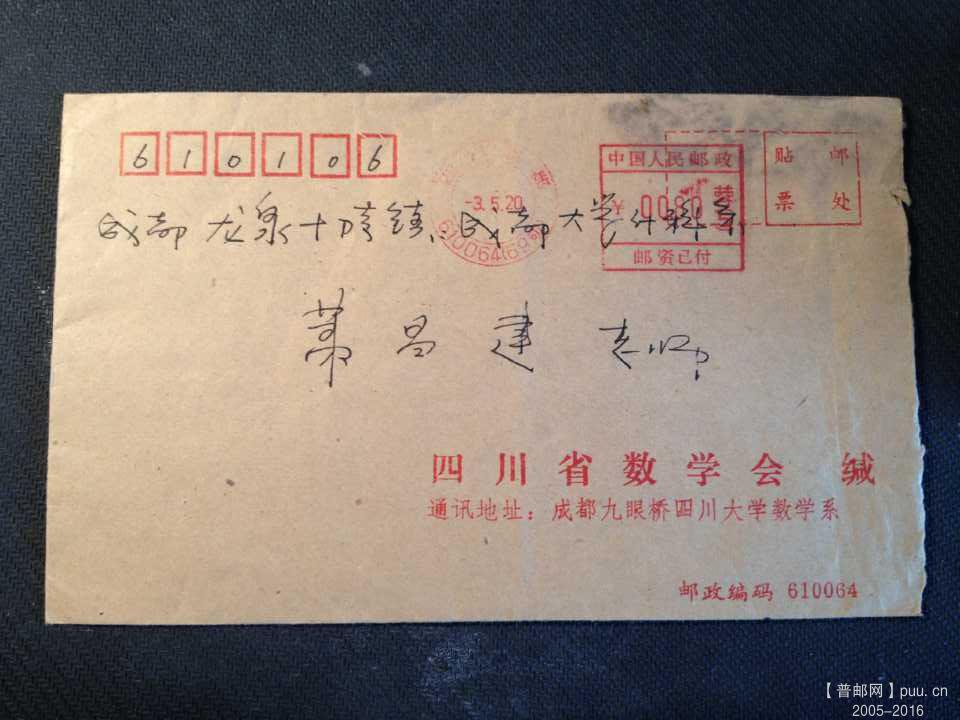 610106
中国人民邮政
贴 邮
票 处
蓉
-3.5.20
610064(69)
邮资已付
成都 龙泉十陵镇.成都大学计科系
萧昌建 老师
四川省数学会 缄
通讯地址：成都九眼桥四川大学数学系
邮政编码 610064
【普邮网】puu.cn
2005-2016